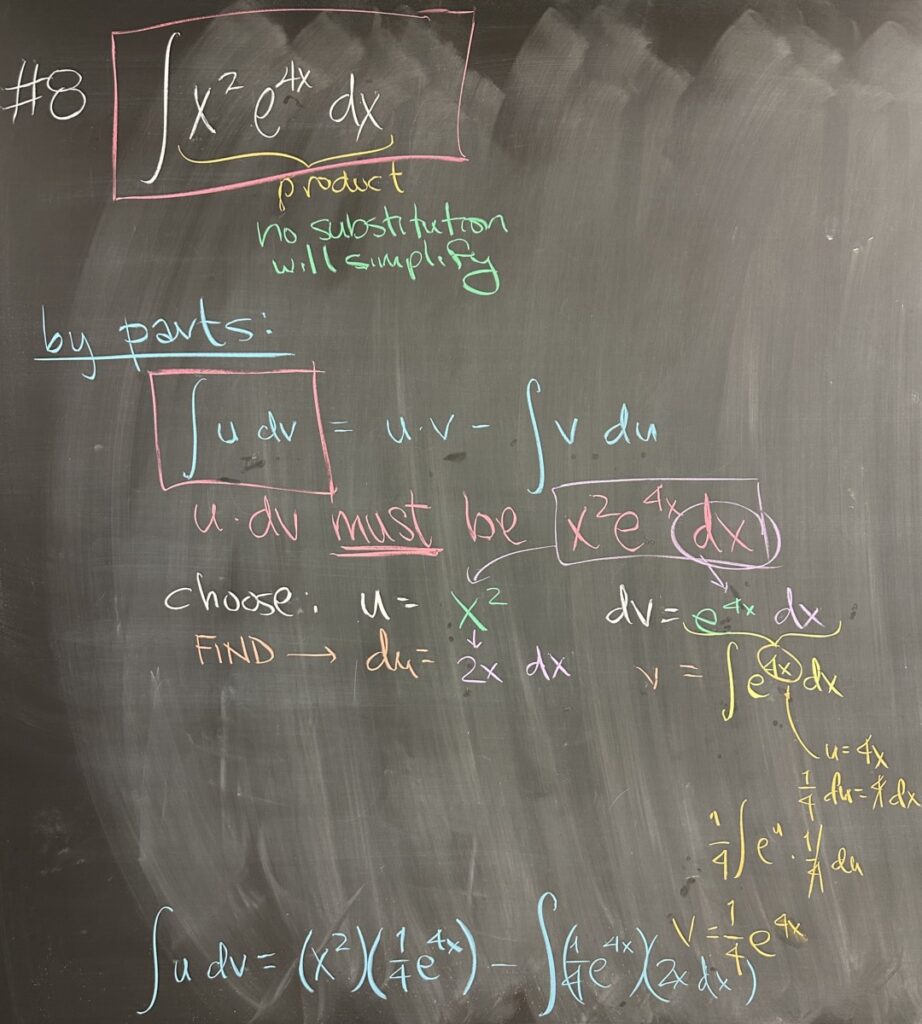 #8 ∫ x² e^{4x} dx
product
no substitution
will simplify
by parts:
∫ u dv = u·v - ∫ v du
u·dv must be x²e^{4x} dx
choose: u = x² dv = e^{4x} dx
FIND → du = 2x dx v = ∫ e^{4x} dx
u = 4x
1/4 du = 4 dx
1/4 ∫ e^u · 1/4 du
v = 1/4 e^{4x}
∫ u dv = (x²)(1/4 e^{4x}) - ∫ (1/4 e^{4x})(2x dx)